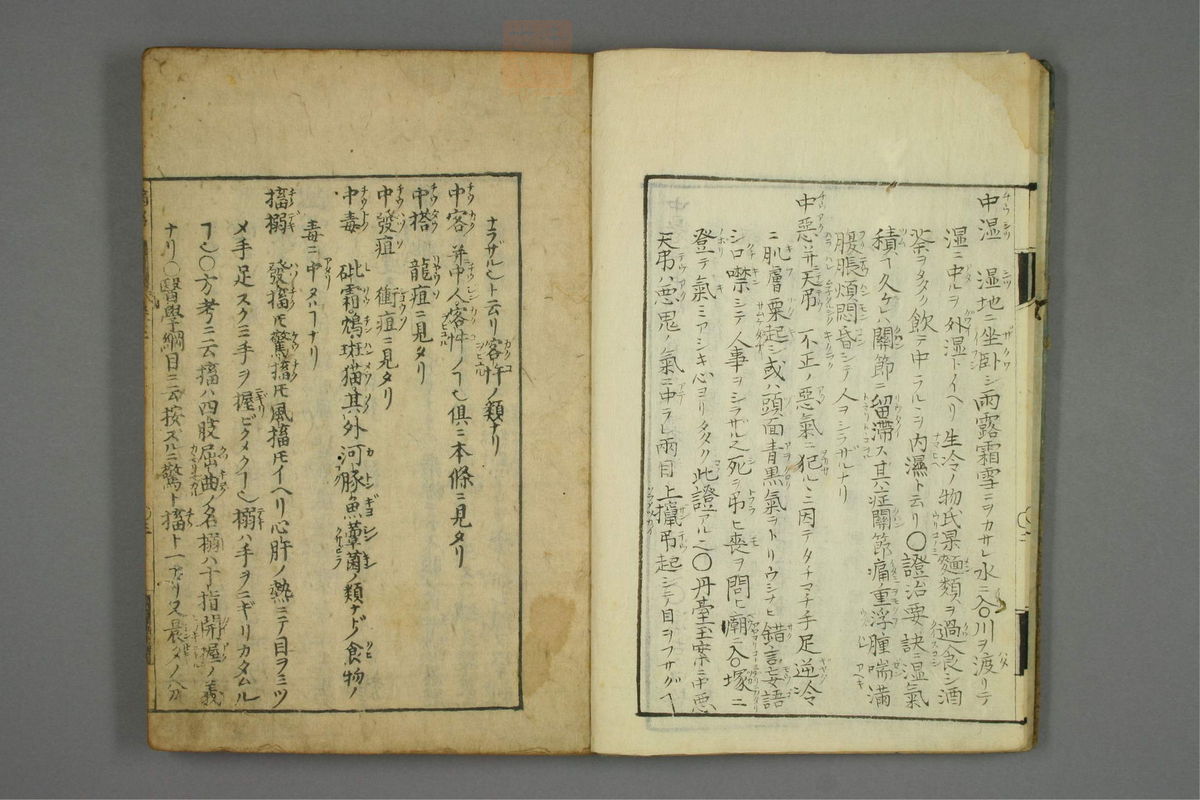 中湿 湿地ニ坐卧シ雨露霜雪ニヲカサレ水ニ入川ヲ渡リテ
湿ニ中ルヲ外湿トイヘリ生冷ノ物 麵類ヲ過食シ酒
茶ヲタクサン飲テ中ラルヽヲ内濕ト云リ〇證治要訣ニ湿氣
積テ久ケレハ關節ニ留滞ス其症關節痛重浮腫喘滿
腹脹煩悶昏シテ人ヲシラザルナリ
中惡并天吊 不正ノ惡氣ニ犯ルヽニ因テタチマチ手足逆冷
ニ肌膚粟起シ或ハ頭面青黒氣ヲトリウシナヒ錯言妄語
シ口噤シテ人事ヲシラザル之死ヲ吊ヒ喪ヲ問ヒ廟ニ入塚ニ
登テ氣ミアシキ心ヨリ 此證アル之〇丹臺玉案ニ中惡
天吊ハ惡鬼ノ氣ニ中ラレ兩目上攛吊起シテ目ヲフサグヿ
ナラザル也ト云リ客忤ノ類ナリ
中客并中人 客忤ノヿ也倶ニ本條ニ見タリ
中搭 龍疽ニ見タリ
中發疽 衝疽ニ見タリ
中毒 砒霜鴆斑猫其外河豚魚蕈菌ノ類ナド食物ノ
毒ニ中タルヿナリ
搐搦 發搐トモ驚搐トモ風搐トモイヘリ心肝ノ熱ニテ目ヲミツ
メ手足スクミ手ヲ握ビクメクヿ也搦ハ手ヲニギリカタムル
ヿ也〇方考ニ云搐ハ四肢屈曲ノ名搦ハ十指開握ノ義
ナリ〇醫學綱目ニ云按ズルニ驚ト搐ト一 ナリ又